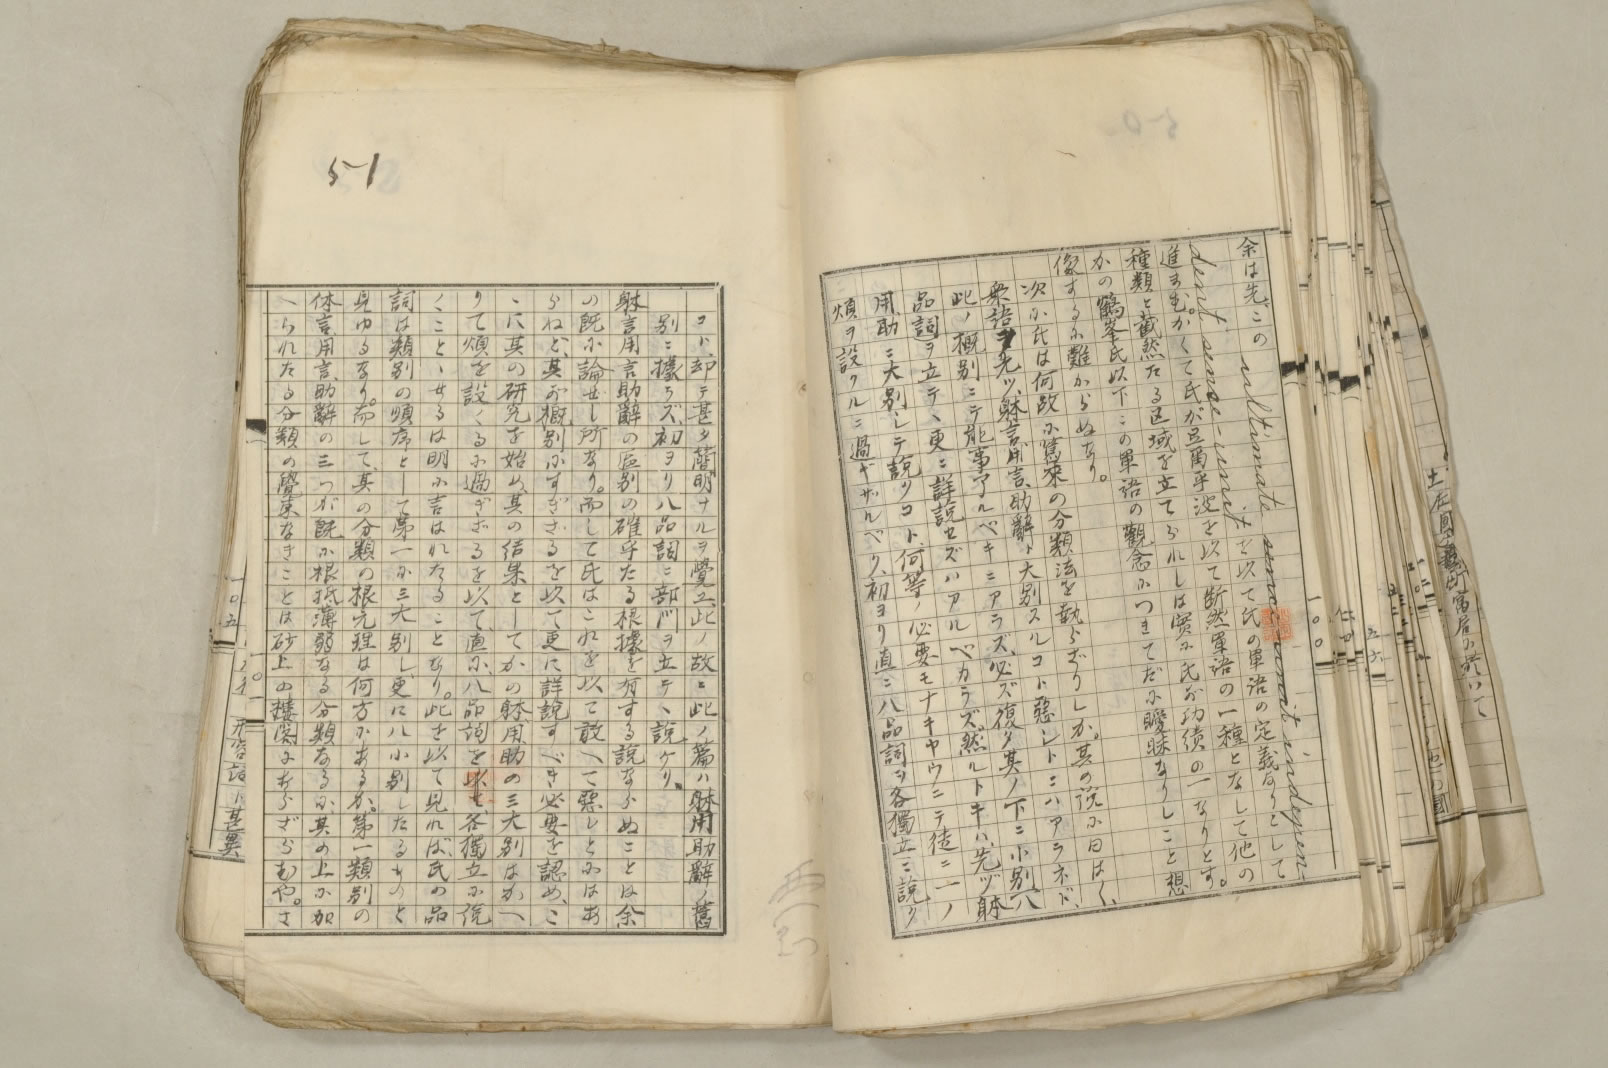 余は先づこの ultimate sense-unit indepen-
dent sense-unit を以て氏の單語の定義なりとして
進まむ。かくて氏が弖爾乎波を以て断然單語の一種となして他の
種類と截然たる区域を立てられしは實に氏が功績の一なりとす。
かの鶴峯氏以下この單語の觀念につきてだに曖昧なりしこと想
像するに難からぬなり。
次に氏は何故に舊來の分類法を執らざりしか。其の說に曰はく、
衆語ヲ先ヅ躰言、用言、助辭ト大別スルコト惡シトニハアラネド、
此ノ概別ニテ能事了ルベキニアラズ、必ズ復タ其ノ下ニ小別八
品詞ヲ立テヽ更ニ詳說セズハアルベカラズ。然ルトキハ、先ヅ躰
用、助ニ大別シテ說クコト、何等ノ必要モナキヤウニテ徒ニ一ノ
煩ヲ設クルニ過ギザルベク、初ヨリ直ニ八品詞ヲ各獨立ニ說ク
51
ヿト、却テ甚タ簡明ナルヲ覺エ、此ノ故ニ此ノ篇ハ躰用助辭ノ舊
別ニ據ラズ、初ヨリ八品詞ニ部門ヲ立テヽ說ケリ、
躰言用言助辭の區別の確乎たる根據を有する說ならぬことは余
の既に論ぜし所なり。而して氏はこれを以て敢へて惡しとにはあ
らねど、其が概別にすぎざるを以て更に詳說すべき必要を認め、こ
ゝに其の研究を始め、其の結果としてかの躰用助の三大別はかへ
りて煩を設くるに過ぎざるを以て、直に八品詞を各獨立に說
くことゝせるは明に言はれたることなり。此を以て見れば、氏の品
詞は類別の順序として第一に三大別し、更に八小別したるものと
見ゆるなり。而して、其の分類の根元理は何方にあるか。第一類別の
体言、用言、助辭の三つが既に根抵薄弱なる分類なるに其の上に加
へられたる分類の覺束なきことは砂上の樓閣にあらざらむや。さ
一〇一
一〇五
形容詞ト甚異
一〇〇
五六